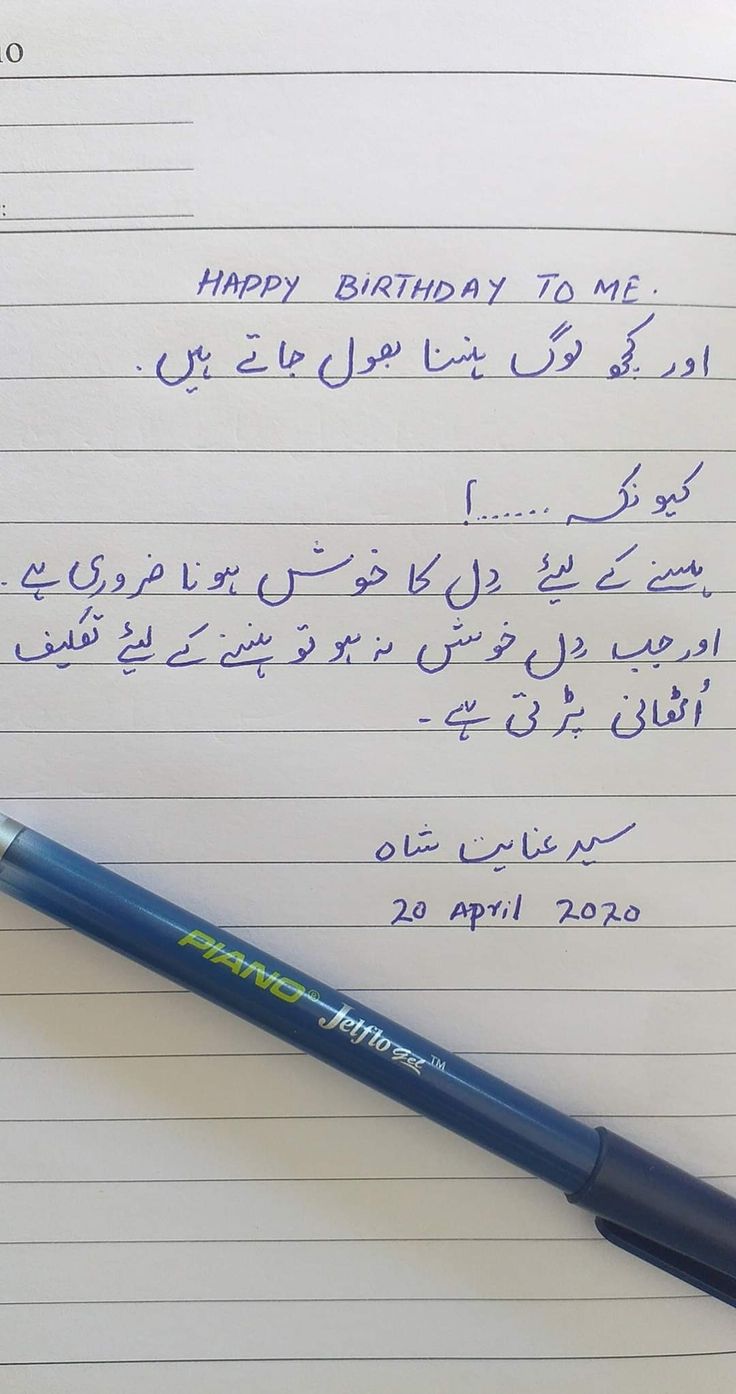 10
:
HAPPY BIRTHDAY TO ME.
اور کچھ لوگ ہنسنا بھول جاتے ہیں.
کیونکہ .......!
ہنسنے کے لیئے دِل کا خوش ہونا ضروری ہے.
اور جب دِل خوش نہ ہو تو ہنسنے کے لیئے تکلیف
اُٹھانی پڑتی ہے-
سید عنایت شاہ
20 April 2020
PIANO® Jelflo gel™